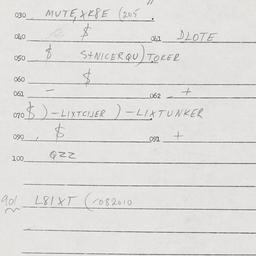 030 MUTE, XR8E (205
040 $ 041 DLOTE
050 $ S+NICERQU) TORER
060 $
061 - 062 +
070 $) -LIXTCIJER) -LIXTUNKER
090 $ 091 +
100 QZZ
901 L81XT (1082010